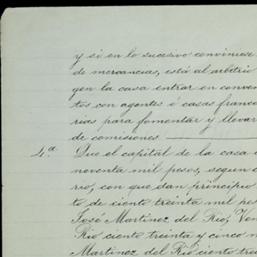 y si en lo sucesivo conviniese
de mercancias, está al arbitrio
gen la casa entrar en conven
tos con agentes ó casas franc
rias para fomentar y llevar
de comisiones
4.a Que el capital de la casa
noventa mil pesos, segun e
rio, con que dan principio
to de ciento treinta mil pe
José Martinez del Rio, Ven
Rio ciento treinta y cinco m
Martinez del Rio ciento trei